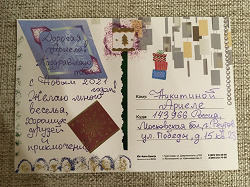 Дорогая
Ариела!
Поздравляю
с Новым 2021
годом!
Желаю много
веселья,
хороших
друзей
и
приключений
Кому Никитиной
Ариеле
Куда 143966 Россия,
Московская обл., г. Реутов
ул. Победы, д. 15